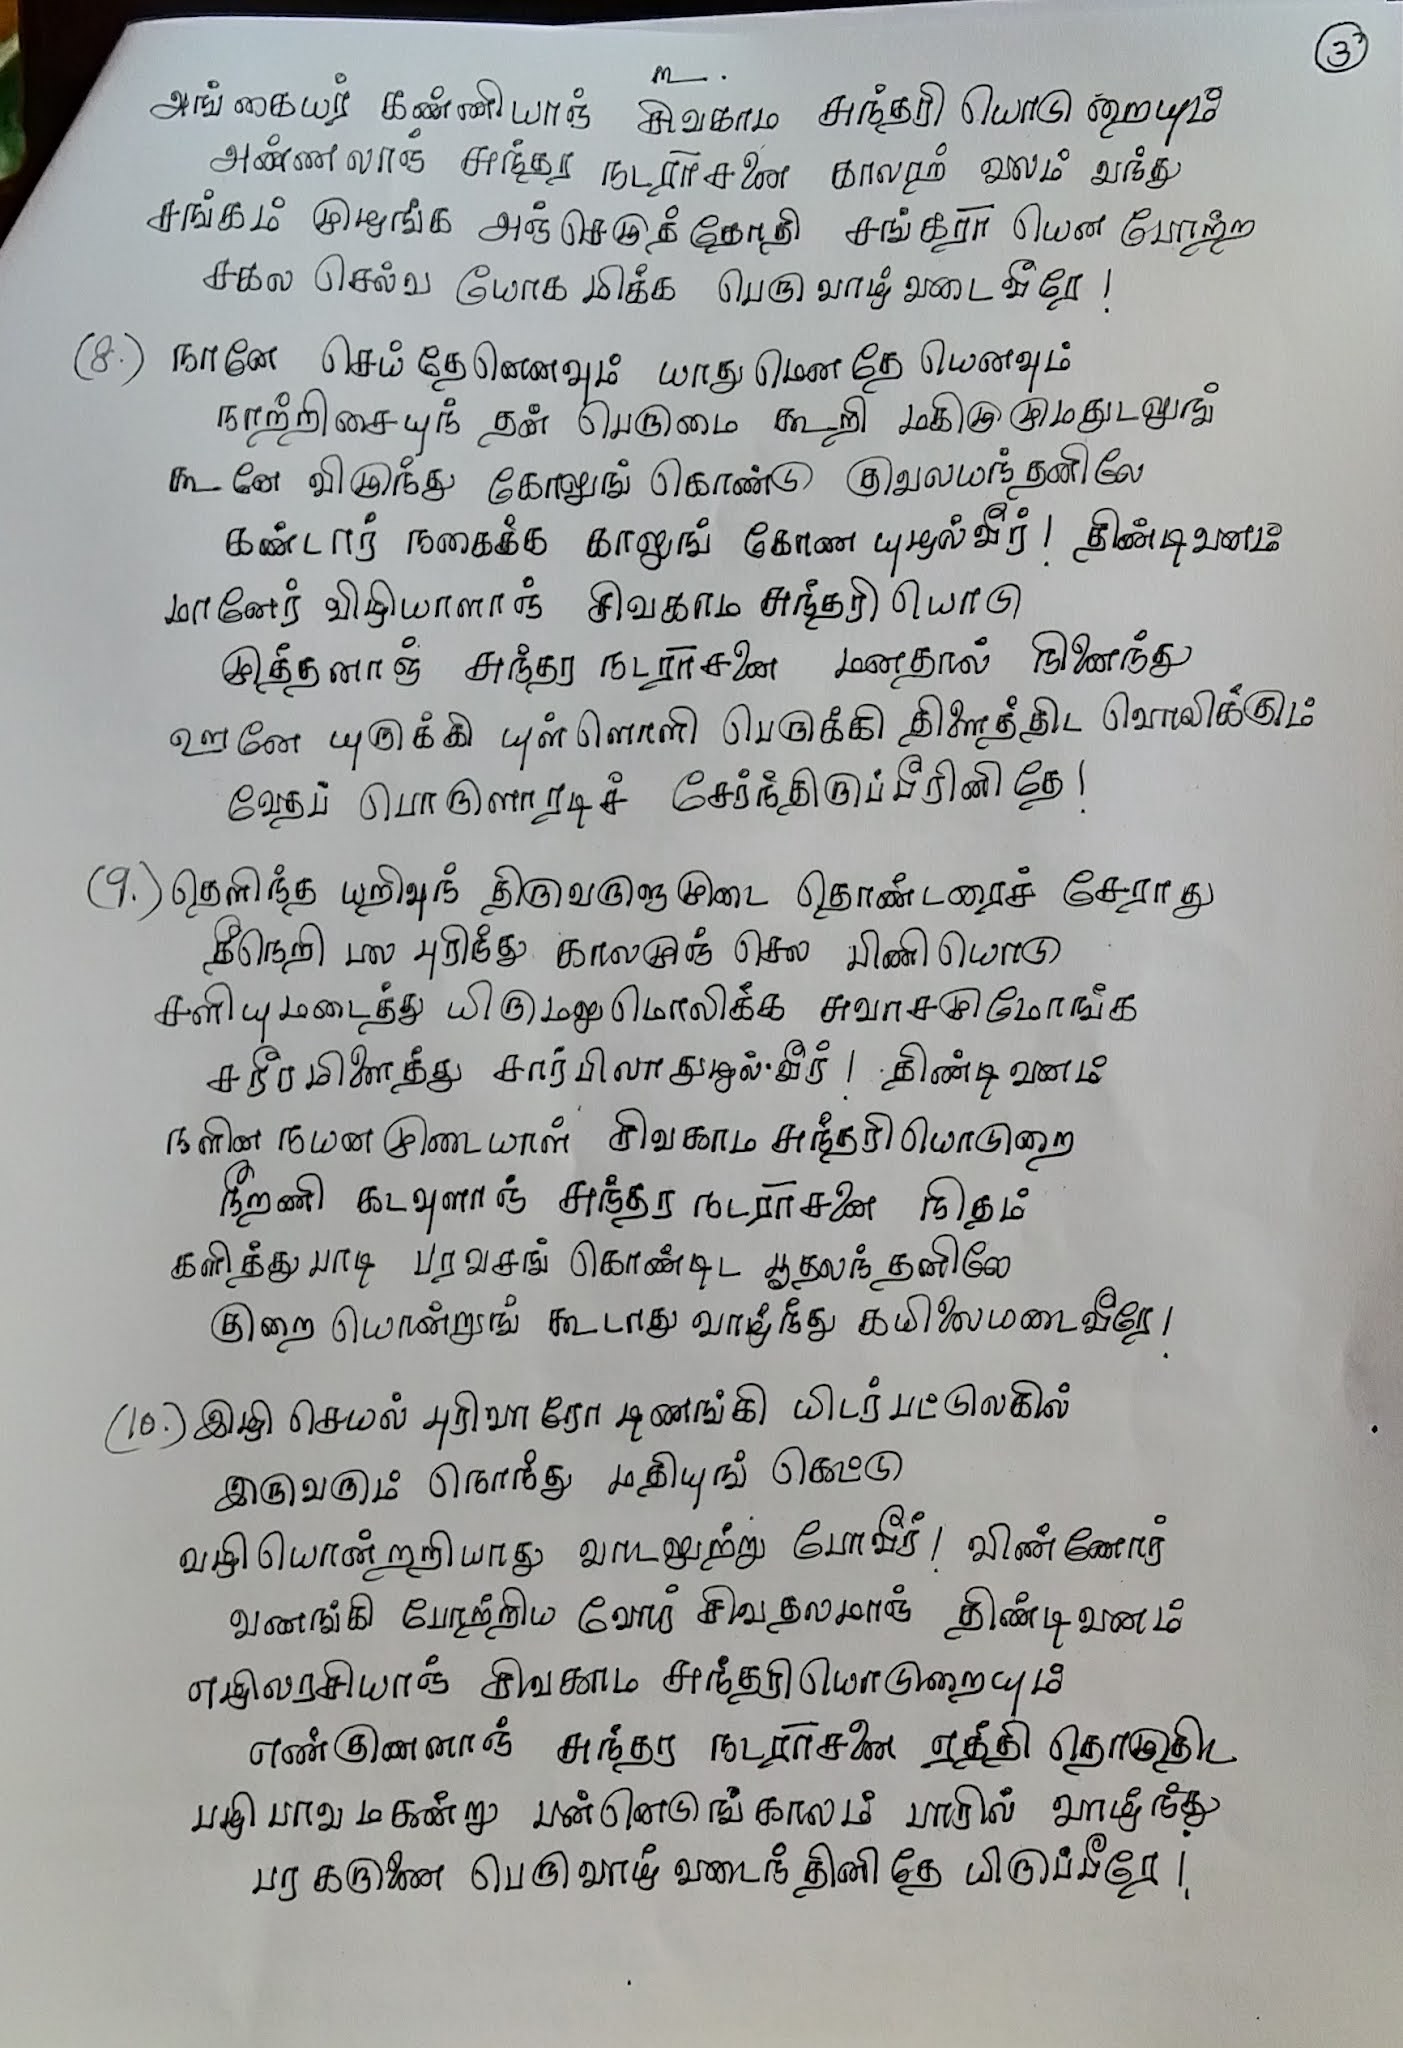 ③
உ
அங்கையற் கண்ணியாஞ் சிவகாம சுந்தரி யொடுறையும்
அண்ணலாஞ் சுந்தர நடராசனை காலற வலம் வந்து
சங்கம் முழங்க அஞ்செழுத்தோதி சங்கரா யென போற்ற
சகல செல்வ யோக மிக்க பெருவாழ் வடைவீரே!
(8.) நானே செய்தேனெனவும் யாதுமெனதே யெனவும்
நாற்றிசையுந் தன் பெருமை கூறி மகிழுமுமதுடலுங்
கூனே விழுந்து கோலுங் கொண்டு குவலயந்தனிலே
கண்டார் நகைக்க காலுங் கோண யுழல்வீர்! திண்டிவனம்
மானேர் விழியாளாஞ் சிவகாம சுந்தரி யொடு
முத்தனாஞ் சுந்தர நடராசனை மனதால் நினைந்து
ஊனே யுருக்கி யுள்ளொளி பெருக்கி திளைத்திட வொலிக்கும்
வேதப் பொருளாரடிச் சேர்ந்திருப்பீரினிதே!
(9.) தெளிந்த யறிவுந் திருவருளுமுடை தொண்டரைச் சேராது
தீநெறி பல புரிந்து காலமுஞ் செல பிணியொடு
சளியுமடைத்து யிருமலுமொலிக்க சுவாசமுமோங்க
சரீரமிளைத்து சார்பிலாதுழல்வீர்! திண்டிவனம்
நளின நயனமுடையாள் சிவகாம சுந்தரியொடுறை
நீறணி கடவுளாஞ் சுந்தர நடராசனை நிதம்
களித்து பாடி பரவசங் கொண்டிட பூதலந்தனிலே
குறை யொன்றுங் கூடாது வாழ்ந்து கயிலைமடைவீரே!
(10.) இழி செயல் புரிவாரோ டிணங்கி யிடர்பட்டுலகில்
இருவரும் நொந்து மதியுங் கெட்டு
வழியொன்றறியாது வாடலுற்று போவீர்! விண்ணோர்
வணங்கி போற்றிய வோர் சிவதலமாஞ் திண்டிவனம்
எழிலரசியாஞ் சிவகாம சுந்தரியொடுறையும்
எண்குணனாஞ் சுந்தர நடராசனை ஏத்தி தொழுதிட
பழி பாவ மகன்று பன்னெடுங்காலம் பாரில் வாழ்ந்து
பர கருணை பெருவாழ் வடைந்தினிதே யிருப்பீரே!